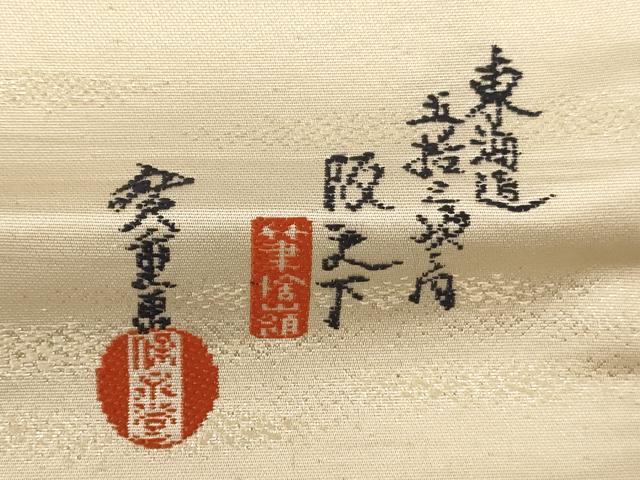 東海道
五拾三次之内
阪之下
筆捨嶺
廣重画
保永堂